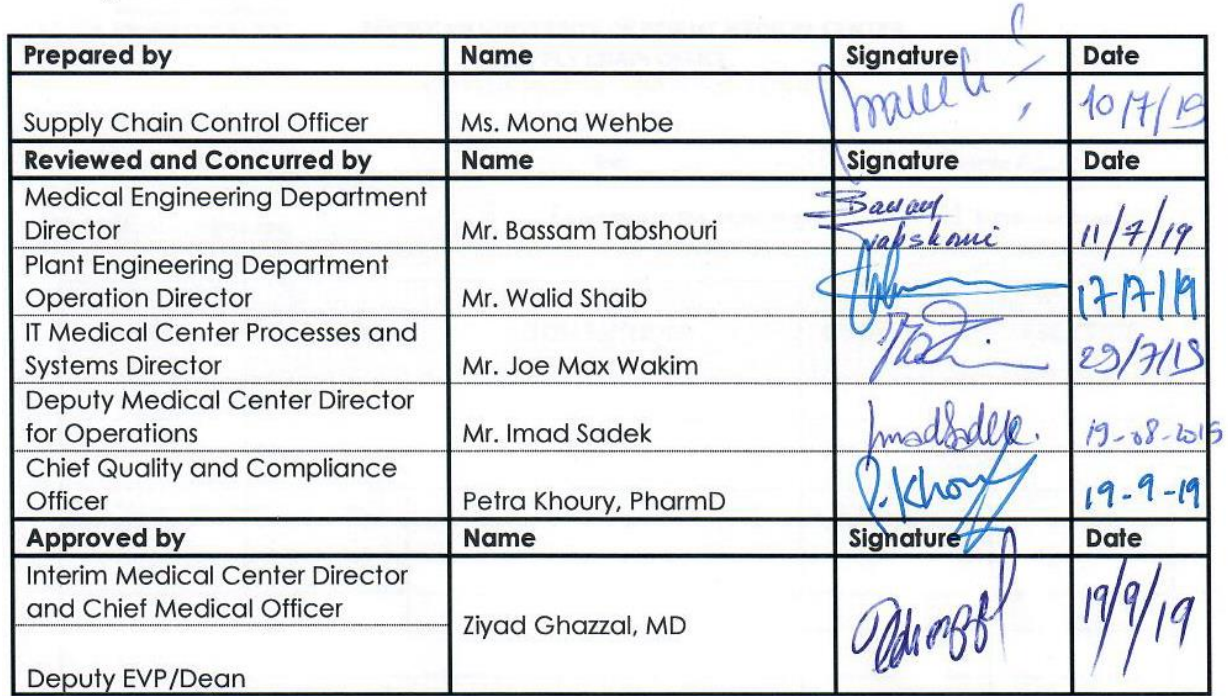 Prepared by Name Signature Date
Supply Chain Control Officer Ms. Mona Wehbe 10/7/19
Reviewed and Concurred by Name Signature Date
Medical Engineering Department
Director Mr. Bassam Tabshouri Bassam
Tabshouri 11/7/19
Plant Engineering Department
Operation Director Mr. Walid Shaib 17/7/19
IT Medical Center Processes and
Systems Director Mr. Joe Max Wakim 29/7/19
Deputy Medical Center Director
for Operations Mr. Imad Sadek Imad Sadek. 19-08-2019
Chief Quality and Compliance
Officer Petra Khoury, PharmD P. Khoury 19-9-19
Approved by Name Signature Date
Interim Medical Center Director
and Chief Medical Officer
Ziyad Ghazzal, MD 19/9/19
Deputy EVP/Dean